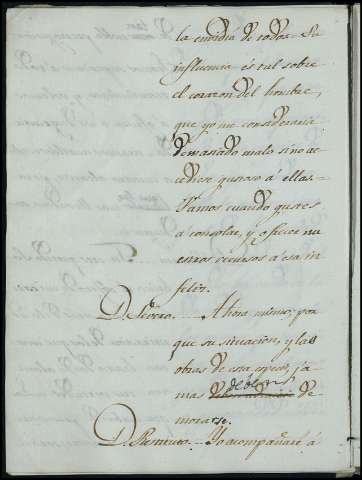 la envidia de todos. Su
influencia es tal sobre
el corazon del hombre,
que yo me consideraria
demasiado malo sino ac-
cediese gustoso á ellas.
Vamos cuando quieras
á consolar, y ofrecer nu
estros recursos a esa in
feliz.
D. Severo. Ahora mismo, por
que su situacion, y las
obras de esta especie, ja
mas deben de
morarse.
D. Remigio. Yo acompañaré á